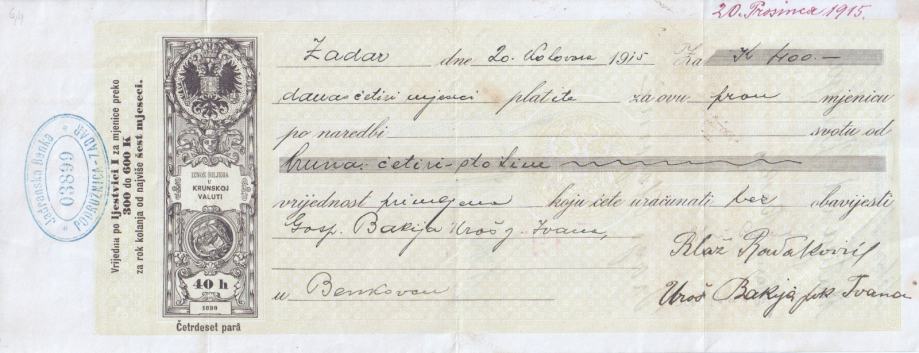 20. Prosinca 1915.
Zadar dne 20. Kolovoza 1915 Za K 400.-
danas četiri mjeseci platite za ovu prvu mjenicu
po naredbi svotu od
kruna: četiri-sto
vrijednost primljena koju ćete uračunati bez obavijesti
Gosp. Bakija Uroš pk. Ivana,
u Benkovcu
Blaž Radaković
Uroš Bakija pk Ivana
Vrijedna po ljestvici I za mjenice preko
300 do 600 K
za rok kolanja od najviše šest mjeseci.
Jadranska banka
03999
PODRUŽNICA-ZADAR
IZNOS BILJEGA
U
KRUNSKOJ
VALUTI
40 h
1899
Četrdeset parâ